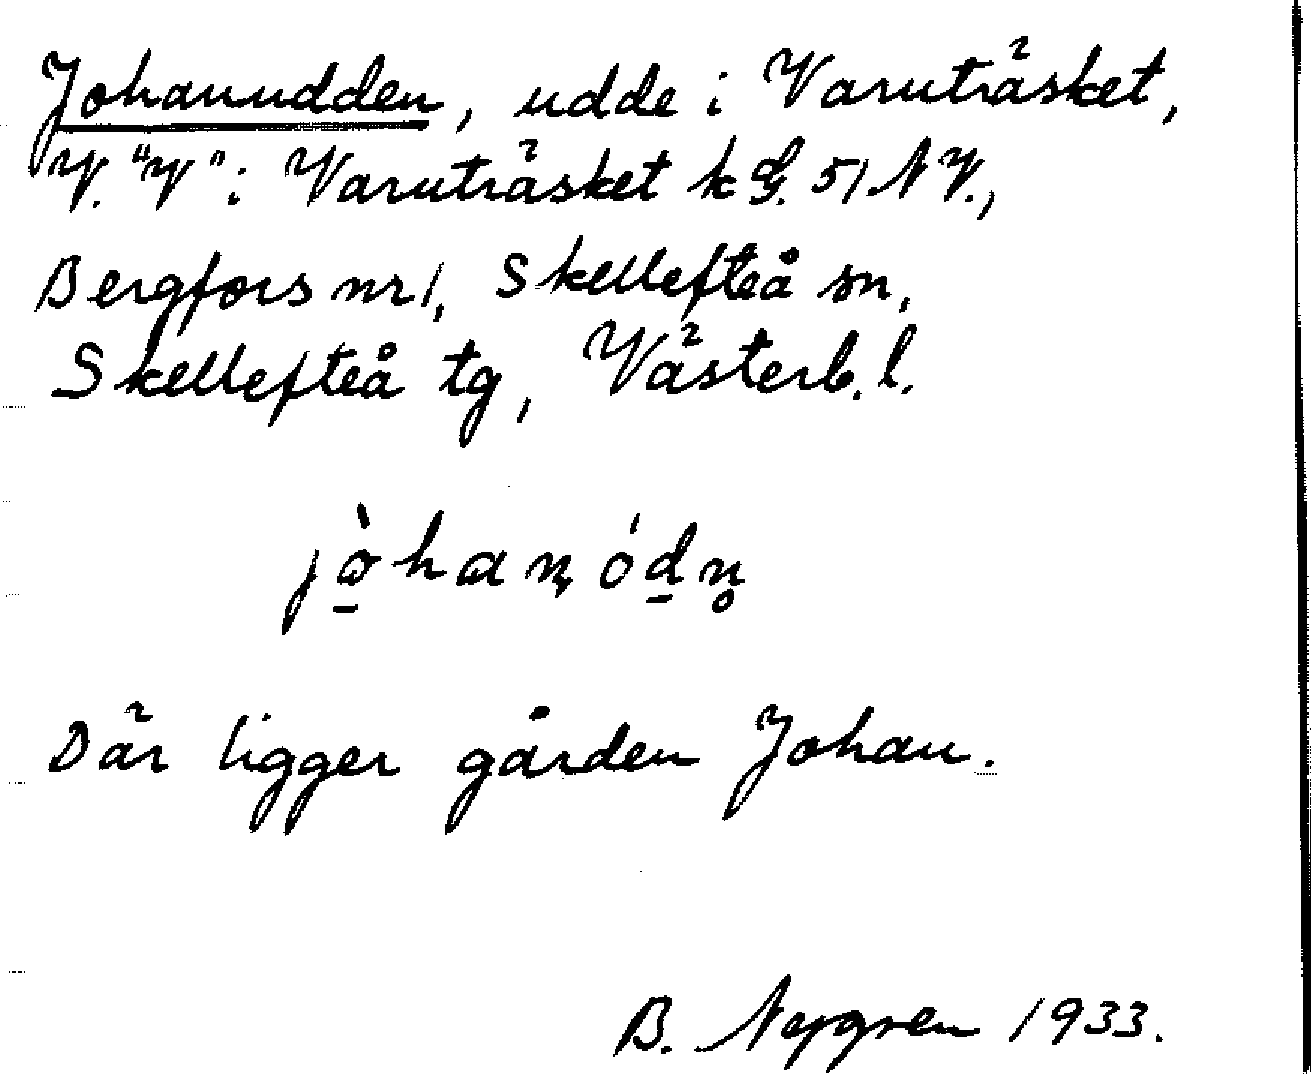 Johanudden, udde i Varuträsket,
V. "V" i Varuträsket k G. 51 NV.,
Bergfors nr 1, Skellefteå sn,
Skellefteå tg, Västerb. l.
jò̱hanód̠n̥
Där ligger gården Johan.
B. Nygren 1933.